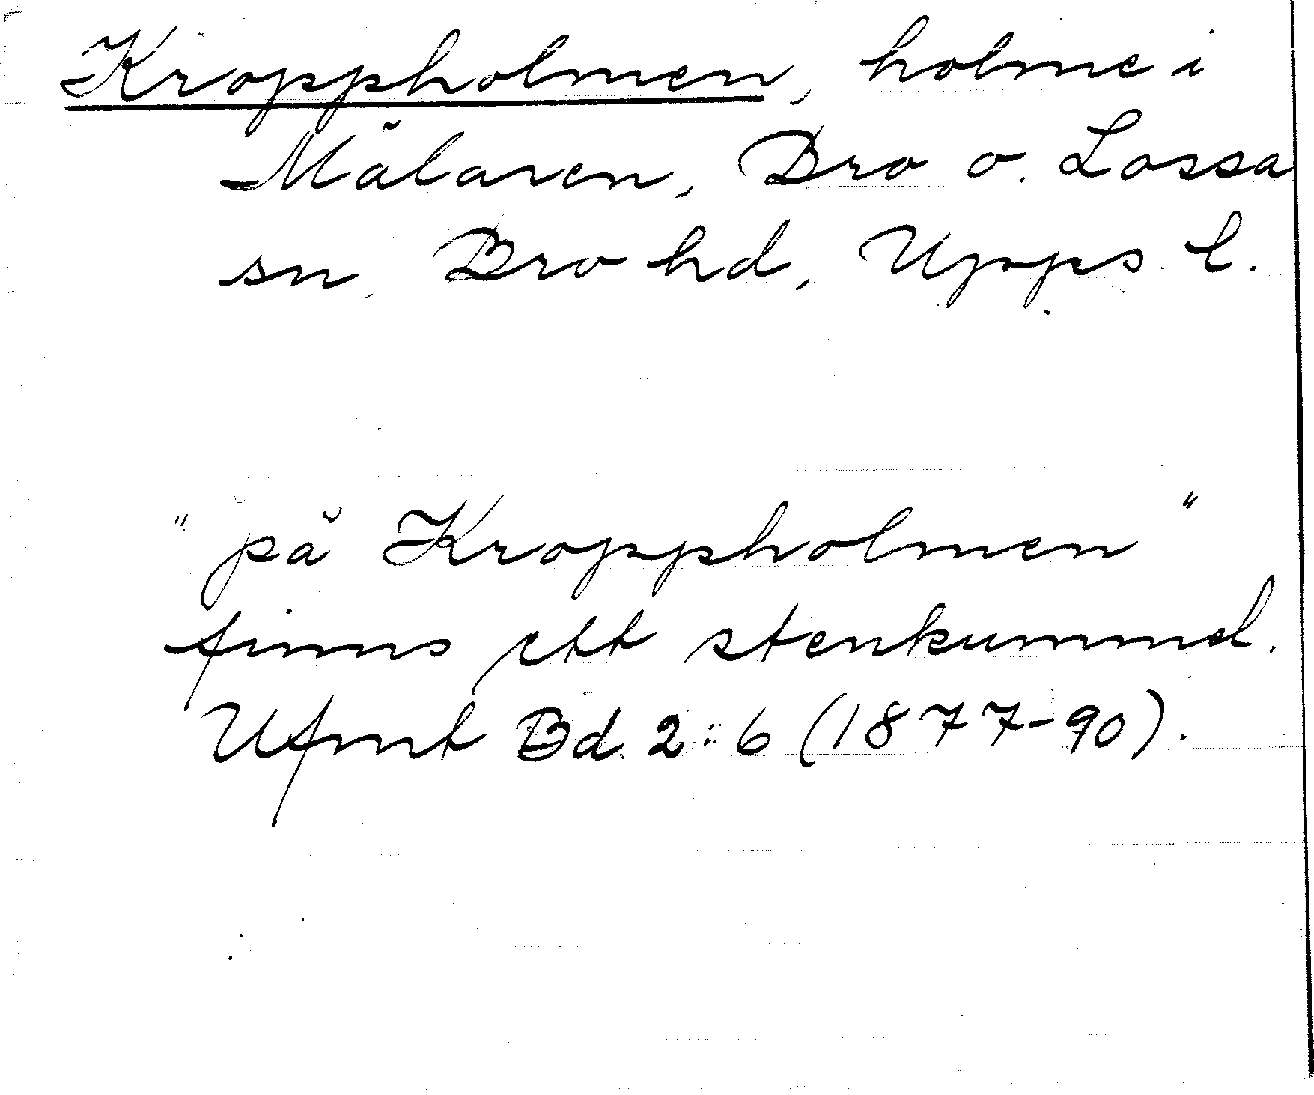 Kroppholmen, holme i
Mälaren, Bro o. Lossa
sn, Bro hd, Upps. l.
"på Kroppholmen"
finns ett stenkummel.
Ufmt Bd 2:6 (1877-90).